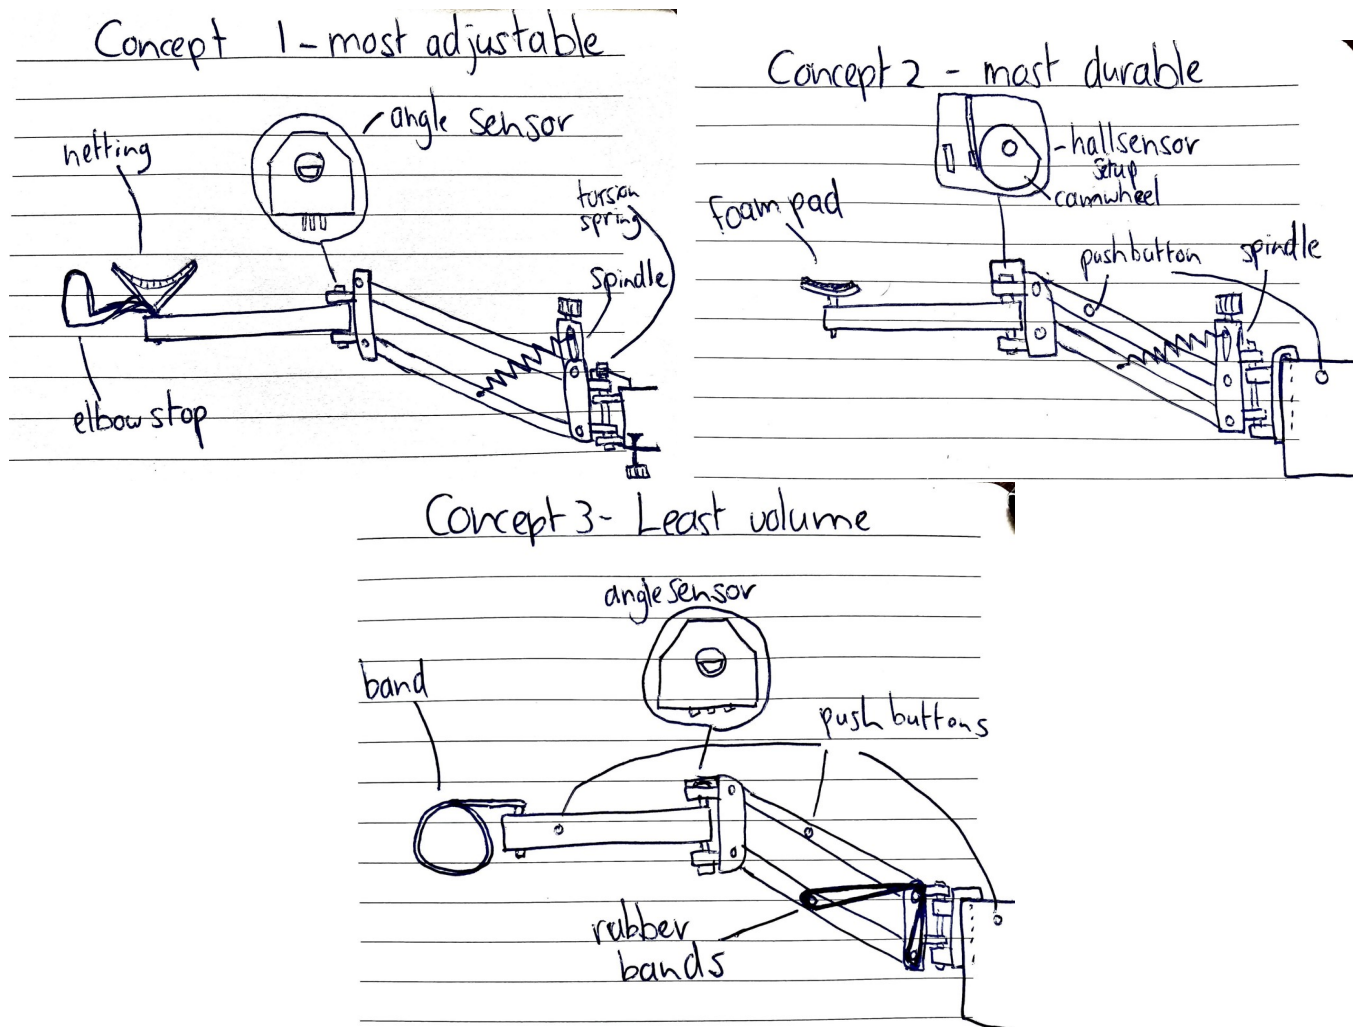 Concept 1 - most adjustable
angle sensor
netting
torsion
spring
spindle
elbow stop
Concept 2 - most durable
hallsensor
setup
camwheel
foam pad
pushbutton
spindle
Concept 3 - Least volume
angle sensor
band
push buttons
rubber
bands